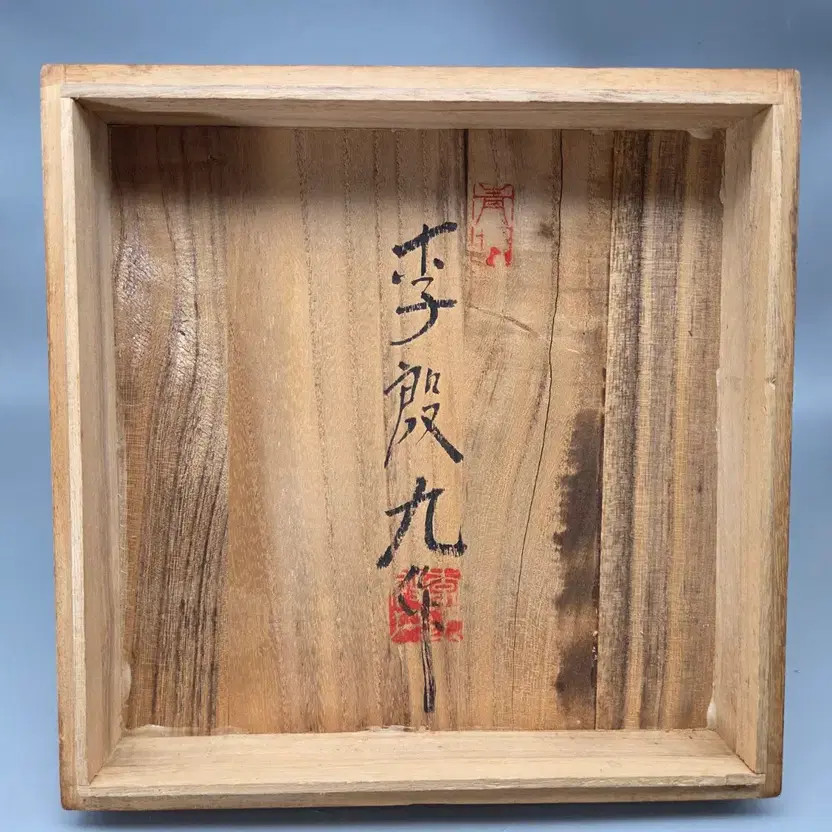 李殷九作